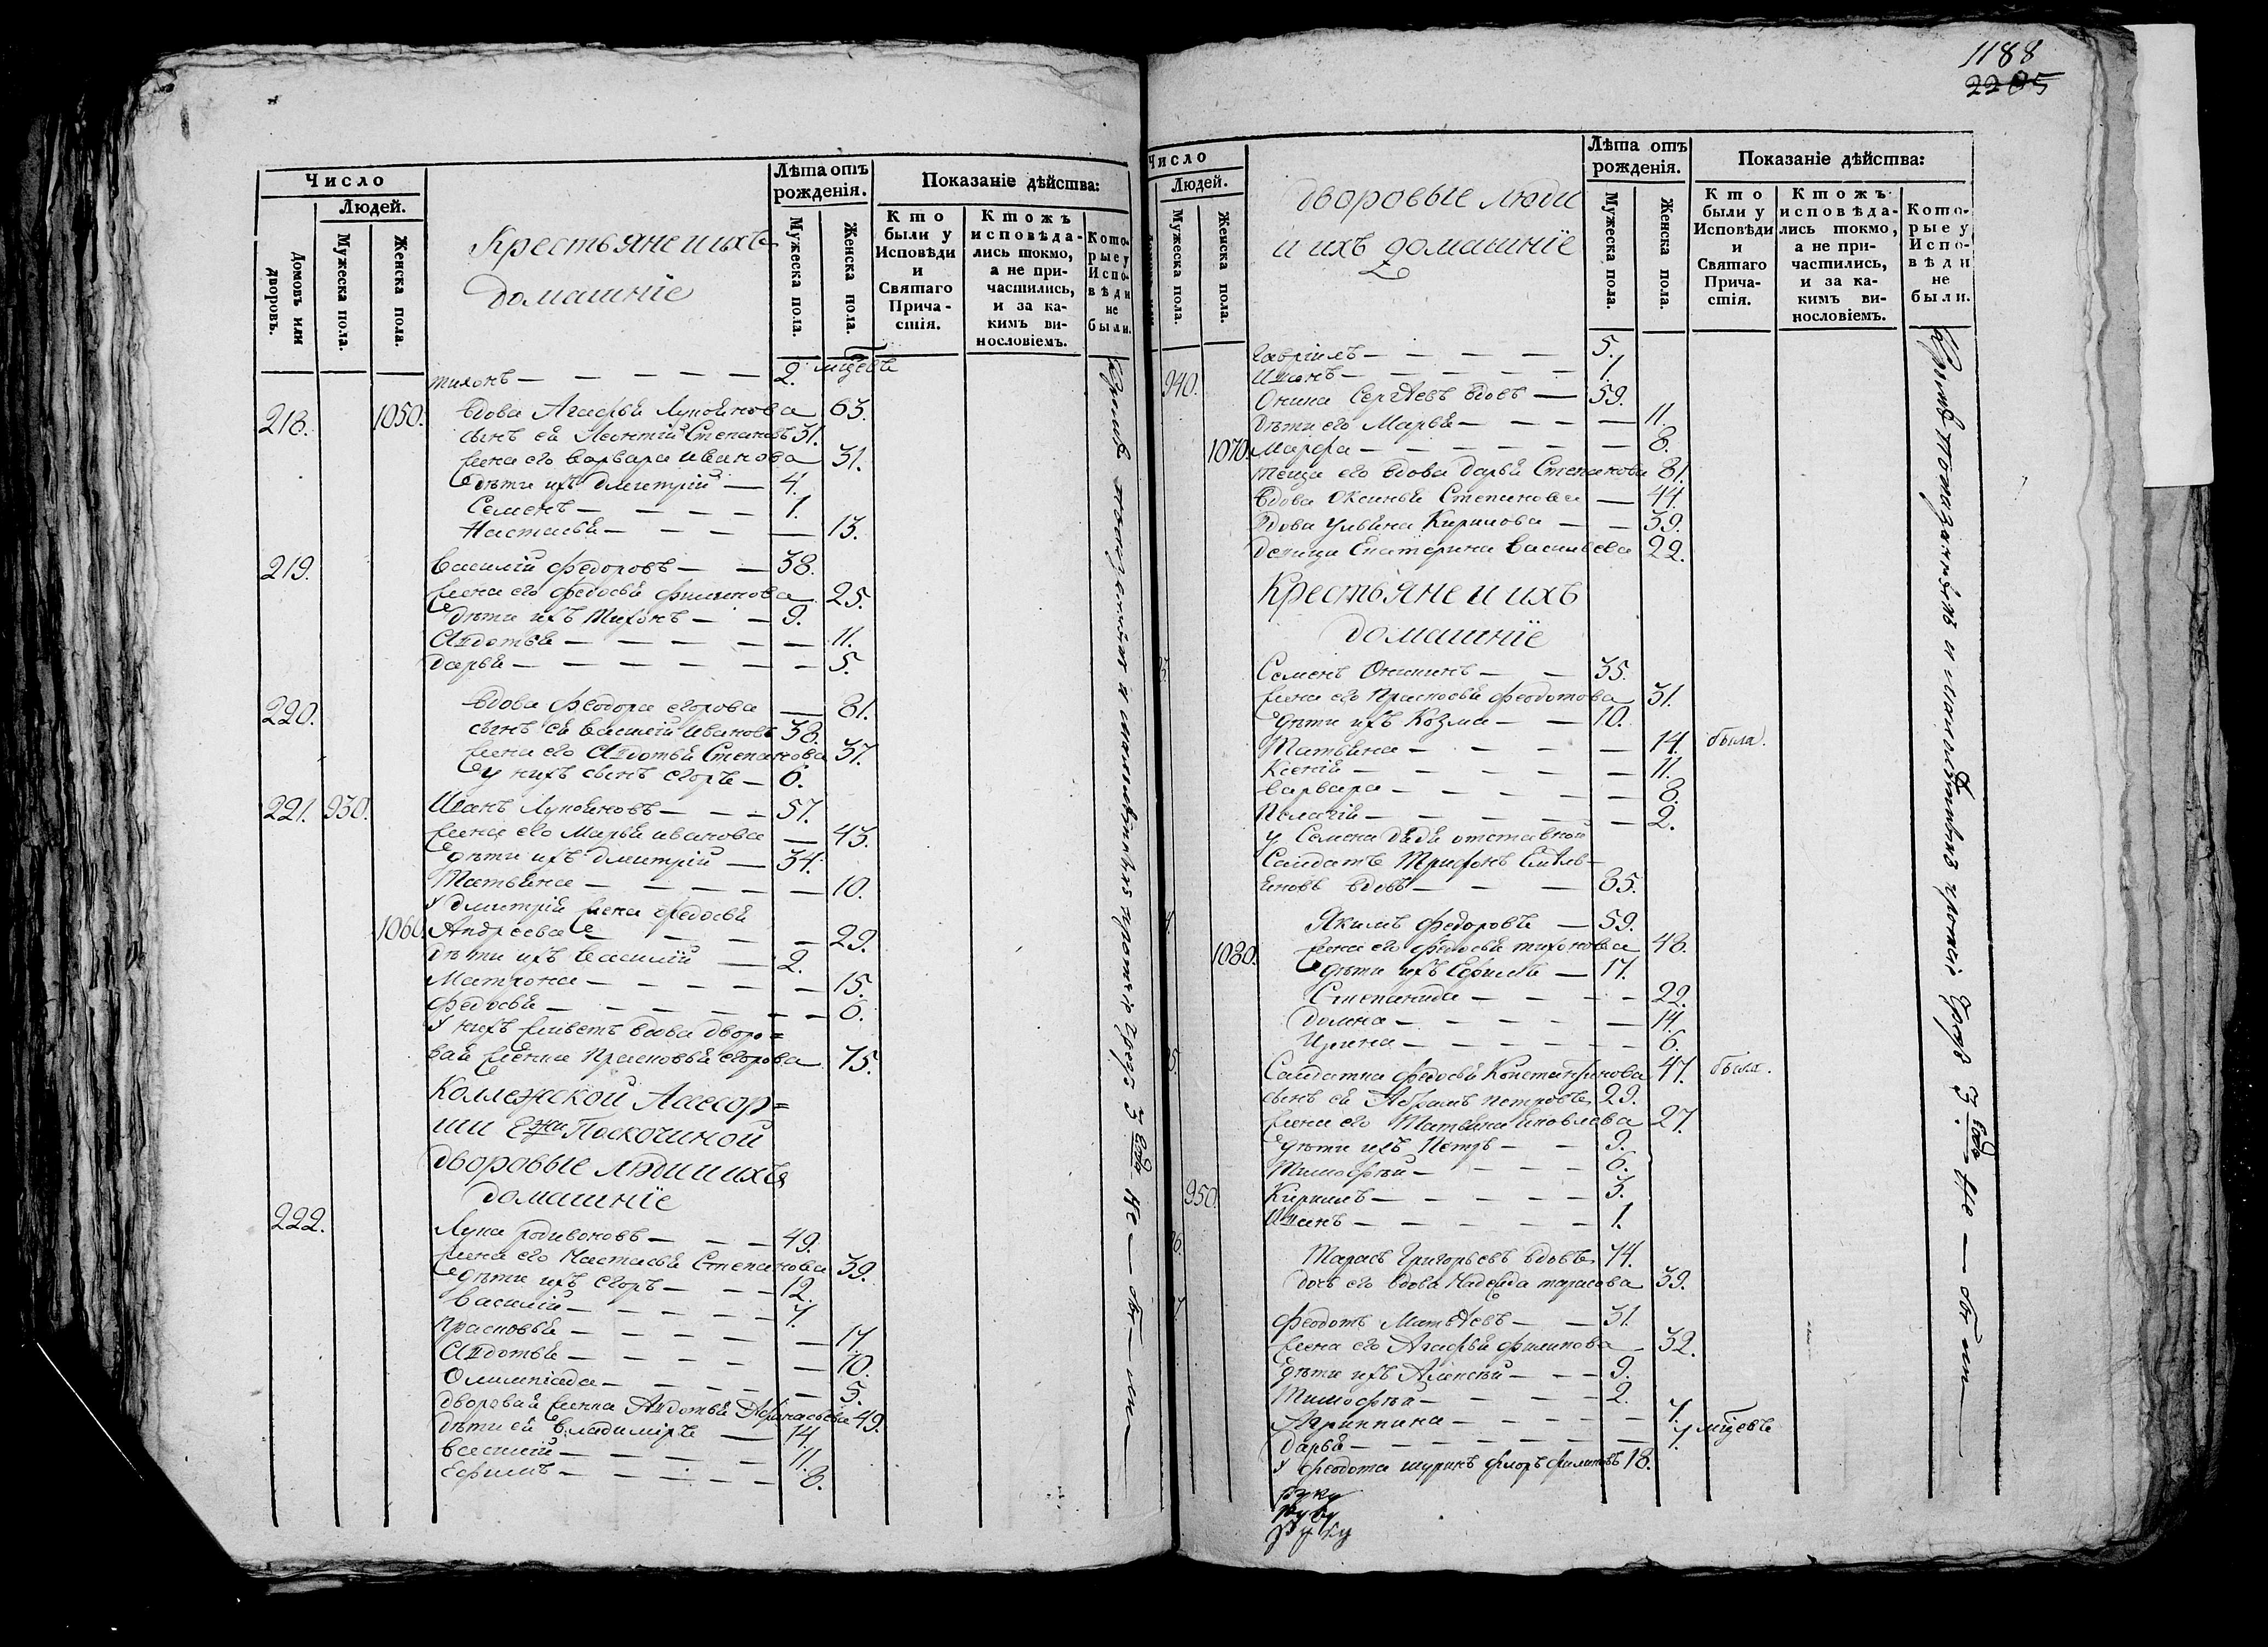 1188
2285
Число
Людей.
Домовъ или дворовъ.
Мужеска пола.
Женска пола.
Крестьяне и ихъ
домашніе
Лѣта отъ рожденія.
Мужеска пола.
Женска пола.
Показаніе дѣйства:
Кто были у Исповѣди и Святаго Причастія.
Ктожъ исповѣдались токмо, а не причастились, и за какимъ винословіемъ.
Которые у Исповѣди не были.
Тихонъ — 2. мцевъ
218. 1050. вдова Агафья Лукоянова 63.
сынъ ея Леонтій Степановъ 31.
жена его Варвара Иванова 31.
дѣти ихъ Дмитрій — 4.
Семенъ — 1.
Настасья — 13.
219. Василій Федоровъ — 38.
жена его Федосья Филипова 25.
дѣти ихъ Тихонъ — 9.
Авдотья — 11.
Дарья — 5.
220. вдова Феодора Егорова — 81.
сынъ ея Василій Ивановъ 38.
жена его Авдотья Степанова 37.
у нихъ сынъ Егоръ — 6.
221. 930. Иванъ Лукояновъ — 57.
жена его Марья Иванова — 43.
дѣти ихъ Дмитрій — 34.
Татьяна — 10.
У Дмитрія жена Федосья
1060. Андреева — 29.
дѣти ихъ Василій — 2.
Матрона — 15.
Федосья — 6.
У нихъ живетъ вдова дворо=
вая женка Прасковья Егорова 75.
Коллежской Ассесор=
ши Поскочиной
дворовые люди и ихъ
домашніе
222. Лука Родивоновъ — 49.
жена его Настасья Степанова 39.
дѣти ихъ Егоръ — 12.
Василій — 7.
Прасковья — 17.
Авдотья — 10.
Олимпіада — 5.
дворовая женка Авдотья Афанасьева 49.
дѣти ея Владиміръ — 14.
Василій — 11.
Ефимъ — 8.
Кромѣ показанныхъ и малолѣтныхъ протчіе чрезъ 3 года не — бы — ли —
Число
Людей.
Мужеска пола.
Женска пола.
дворовые люди
и ихъ домашніе
Лѣта отъ рожденія.
Мужеска пола.
Женска пола.
Показаніе дѣйства:
Кто были у Исповѣди и Святаго Причастія.
Ктожъ исповѣдались токмо, а не причастились, и за какимъ винословіемъ.
Которые у Исповѣди не были.
Гавріилъ — 5.
940. Иванъ — 1.
Оника Сергѣевъ вдовъ — 59.
дѣти его Марья — 11.
1070. Марфа — 8.
теща его вдова Дарья Степанова 81.
вдова Оксинья Степанова — 44.
вдова Ульяна Кирилова — 39.
девица Екатерина Васильева 22.
Крестьяне и ихъ
домашніе
Семенъ Оникинъ — 35.
жена его Прасковья Феодотова 31.
дѣти ихъ Козма — 10.
Татьяна — 14. была.
Ксенія — 11.
Варвара — 8.
Пелагія — 2.
у Семена дядя отставной
Салдатъ Трифонъ Емель-
яновъ вдовъ — 85.
Якимъ Федоровъ — 59.
1080. жена его Федосья Тихонова 48.
дѣти ихъ Ефимъ — 17.
Степанида — 22.
Домна — 14.
Ирина — 6.
Салдатка Федосья Константинова 47. была.
сынъ ея Абрамъ Петровъ 29.
жена его Татьяна Яковлева 27.
дѣти ихъ Петръ — 9.
Тимофѣй — 6.
950. Кирилъ — 3.
Иванъ — 1.
Тарасъ Григорьевъ вдовъ 74.
дочь его вдова Надежда Тарасова 39.
Феодотъ Матвѣевъ — 31.
жена его Агафья Филипова — 32.
дѣти ихъ Алексѣй — 9.
Тимофѣй — 2.
Агриппина — 7.
Дарья — 7 мцевъ
У Феодота шуринъ Флоръ Филиповъ 18.
руку
руку
руку
Кромѣ показанныхъ и малолѣтныхъ протчіе чрезъ 3 года не — бы ли —